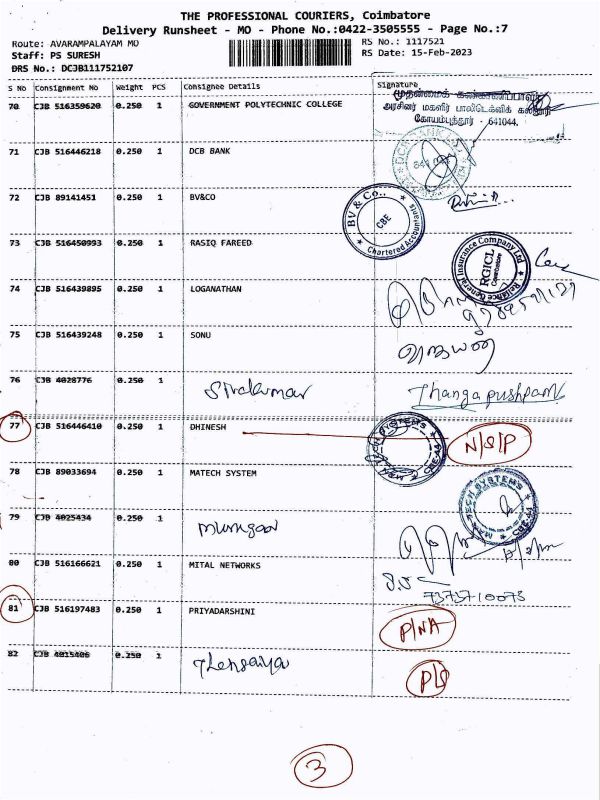 THE PROFESSIONAL COURIERS, Coimbatore
Delivery Runsheet - MO - Phone No.:0422-3505555 - Page No.:7
Route: AVARAMPALAYAM MO
RS No.: 1117521
Staff: PS SURESH
RS Date: 15-Feb-2023
DRS No.: DCJB111752107
S No Consignment No Weight PCS Consignee Details Signature
70 CJB 516359620 0.250 1 GOVERNMENT POLYTECHNIC COLLEGE
முதன்மைக் கண்காணிப்பாளர்
அரசினர் மகளிர் பாலிடெக்னிக் கல்லூரி
கோயம்புத்தூர் - 641044.
71 CJB 516446218 0.250 1 DCB BANK
DCB BANK
72 CJB 89141451 0.250 1 BV&CO
BV & Co.,
CBE
Chartered Accountants
73 CJB 516450993 0.250 1 RASIQ FAREED
Reliance General Insurance Company Ltd
RGICL
Coimbatore
74 CJB 516439895 0.250 1 LOGANATHAN
75 CJB 516439248 0.250 1 SONU
76 CJB 4028776 0.250 1 Sivakumar Thangapushpam
77 CJB 516446410 0.250 1 DHINESH N/S/P
78 CJB 89033694 0.250 1 MATECH SYSTEM
MAK TECH SYSTEMS
79 CJB 4025434 0.250 1 Murugan
80 CJB 516166621 0.250 1 MITAL NETWORKS
7373710073
81 CJB 516197483 0.250 1 PRIYADARSHINI P/NA
82 CJB 4015406 0.250 1 P/S
3